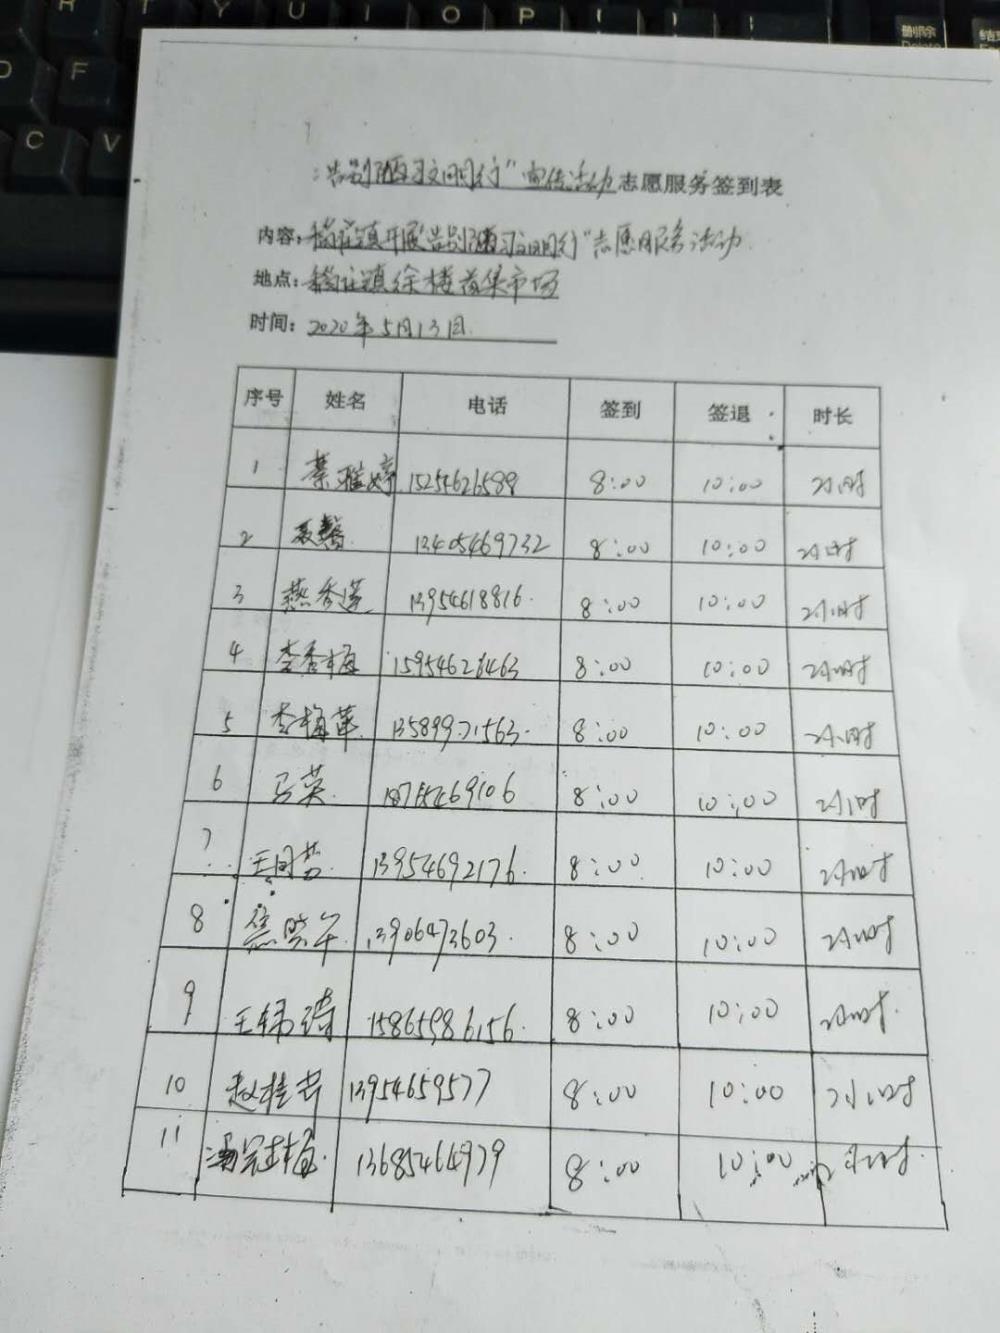 R T Y U I O P
删除
Delete
D F
C V
"告别陋习文明同行"宣传活动志愿服务签到表
内容：稻庄镇开展告别陋习文明同行"志愿服务活动
地点：稻庄镇徐楼前集市场
时间：2020年5月13日.
序号 姓名 电话 签到 签退 时长
1 雅婷 15254626599 8:00 10:00 2小时
2 聂馨 13405469732 8:00 10:00 2小时
3 燕秀莲 13954618816. 8:00 10:00 2小时
4 李香梅 15954628463 8:00 10:00 2小时
5 李梅华 13589971563. 8:00 10:00 2小时
6 马英. 18715469106 8:00 10:00 2小时
7 王同芸. 13954692176. 8:00 10:00 2小时
8 焦 . 13906473603. 8:00 10:00 2小时
9 王锦琦 15865986156. 8:00 10:00 2小时.
10 赵桂芹 13954659577 8:00 10:00 2小时
11 冯冠梅. 13685464979 8:00 10:00 2小时.